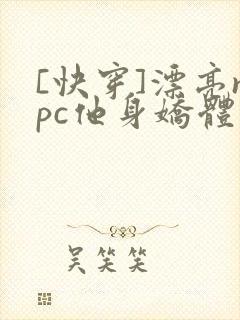 [快穿]漂亮n
pc他身嬌體
吴笑笑